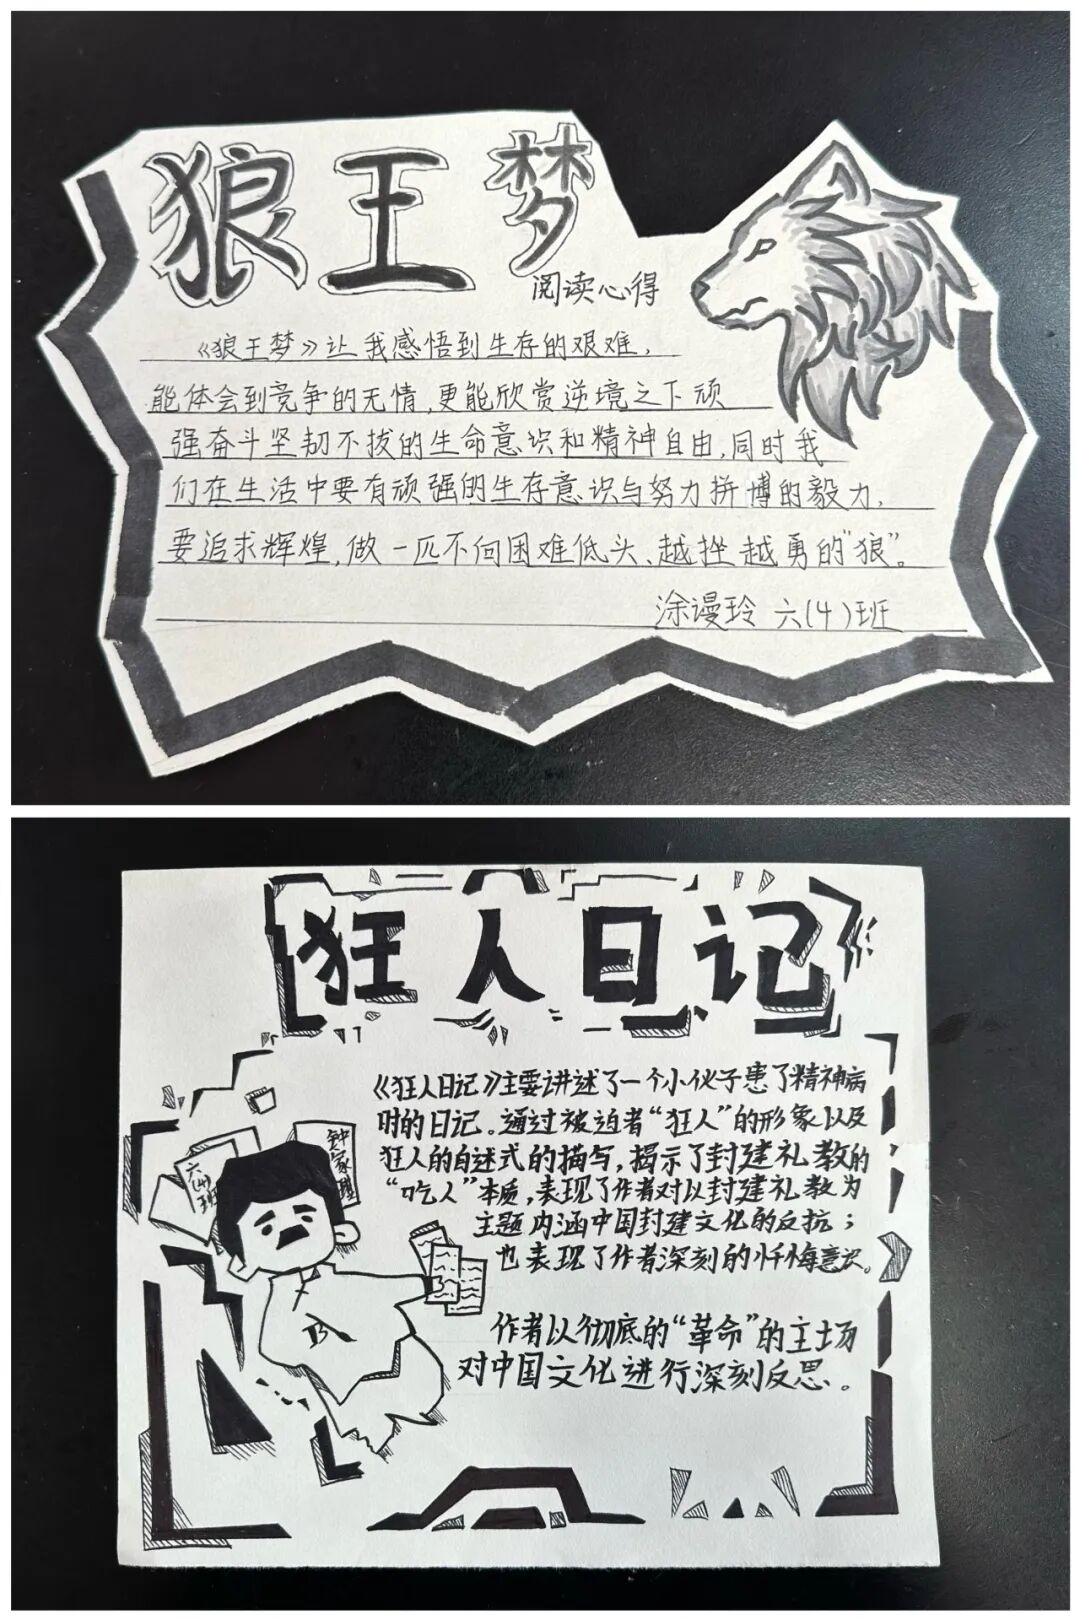 狼王梦
阅读心得
《狼王梦》让我感悟到生存的艰难，
能体会到竞争的无情，更能欣赏逆境之下顽
强奋斗坚韧不拔的生命意识和精神自由，同时我
们在生活中要有顽强的生存意识与努力拼博的毅力，
要追求辉煌，做一匹不向困难低头、越挫越勇的“狼”。
涂谩玲 六(4)班
狂人日记
《狂人日记》主要讲述了一个小伙子患了精神病
时的日记。通过被迫者“狂人”的形象以及
狂人的自述式的描写，揭示了封建礼教的
“吃人”本质，表现了作者对以封建礼教为
主题内涵中国封建文化的反抗；
也表现了作者深刻的忏悔意识。
作者以彻底的“革命”的主场
对中国文化进行深刻反思。
六(4)班
钟家